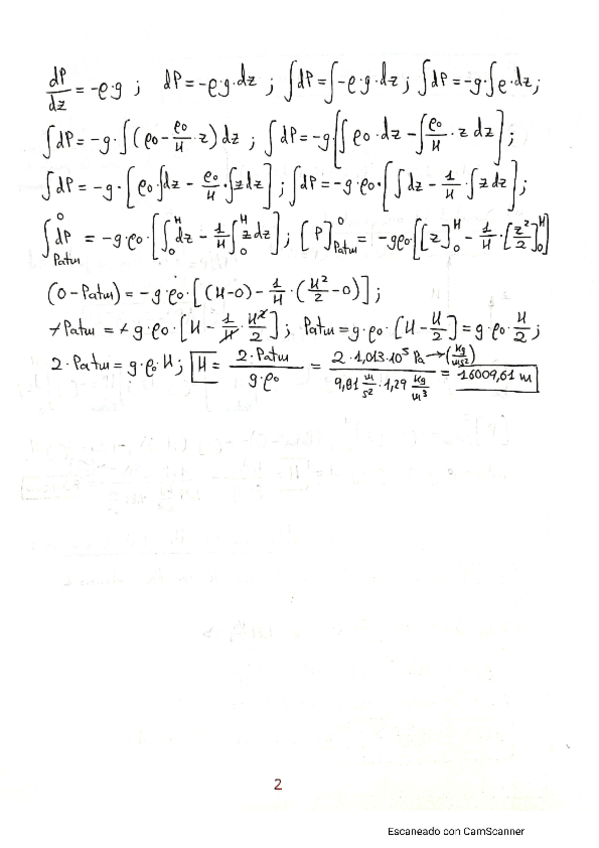 dP/dz = -ρ·g ; dP = -ρ·g·dz ; ∫dP = ∫-ρ·g·dz ; ∫dP = -g·∫ρ·dz ;
∫dP = -g·∫(ρ0 - ρ0/H · z) dz ; ∫dP = -g·[∫ρ0·dz - ∫ρ0/H · z dz] ;
∫dP = -g·[ρ0·∫dz - ρ0/H · ∫z dz] ; ∫dP = -g·ρ0·[∫dz - 1/H ∫z dz] ;
∫_Patm^0 dP = -g·ρ0·[∫_0^H dz - 1/H ∫_0^H z dz] ; [P]_Patm^0 = -gρ0·[[z]_0^H - 1/H · [z²/2]_0^H]
(0 - Patm) = -g·ρ0·[(H-0) - 1/H · (H²/2 - 0)] ;
-Patm = -g·ρ0·[H - 1/H · H²/2] ; Patm = g·ρ0·[H - H/2] = g·ρ0·H/2 ;
2·Patm = g·ρ0·H ; H = 2·Patm / g·ρ0 = 2·1,013·10⁵ Pa → (kg/ms²) / 9,81 m/s² · 1,29 kg/m³ = 16009,61 m
2
Escaneado con CamScanner